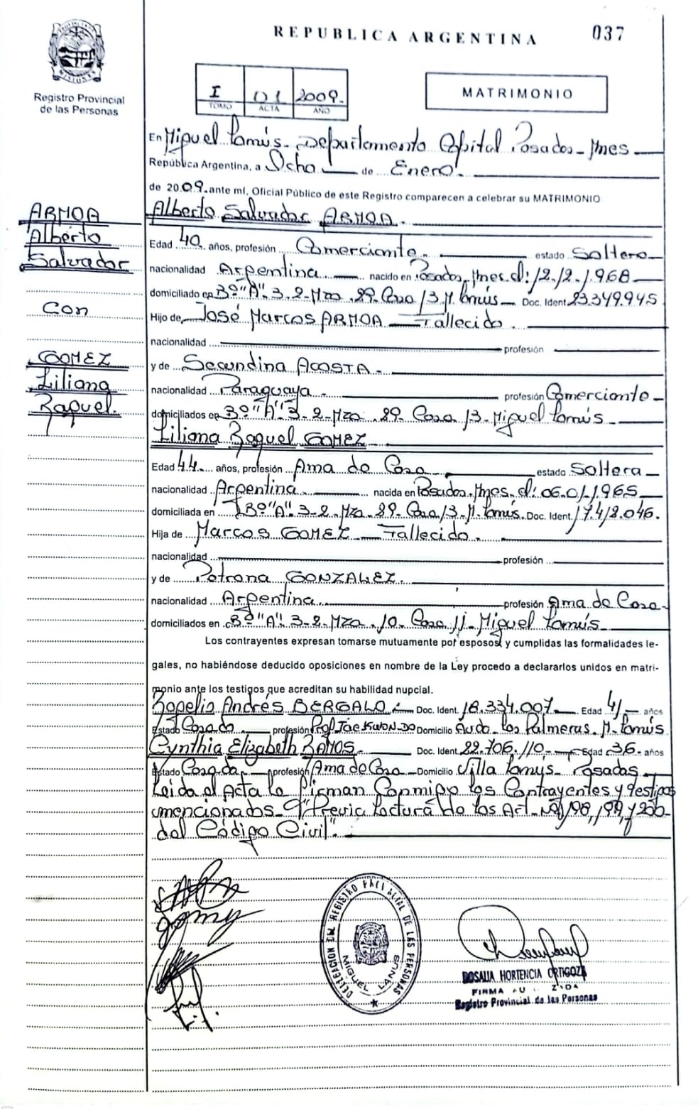 REPUBLICA ARGENTINA
037
Registro Provincial
de las Personas
I 01 2009.
TOMO ACTA AÑO
MATRIMONIO
En Miguel Lanús - Departamento Capital Posadas - Mnes
República Argentina, a Ocho de Enero.
de 2009. ante mí, Oficial Público de este Registro comparecen a celebrar su MATRIMONIO
ARMOA
Alberto
Salvador
Con
GOMEZ
Liliana
Raquel.
Alberto Salvador ARMOA.
Edad 40 años, profesión Comerciante. estado Soltero
nacionalidad Argentina nacido en Posadas, Mnes. el: 12/2/1968
domiciliado en Bº "A" 3-2-Mza. 29. Casa 13. M. Lanús Doc. Ident. 23.349.945
Hijo de José Marcos ARMOA - Fallecido.
nacionalidad profesión
y de Secundina ACOSTA.
nacionalidad Paraguaya profesión Comerciante
domiciliados en Bº "A" 3-2-Mza. 29. Casa 13. Miguel Lanús
Liliana Raquel GOMEZ
Edad 44 años, profesión Ama de Casa estado Soltera
nacionalidad Argentina nacida en Posadas, Mnes. el: 06.01.1965
domiciliada en Bº "A" 3-2-Mza. 29. Casa 13. M. Lanús. Doc. Ident. 17.412.046.
Hija de Marcos GOMEZ - Fallecido.
nacionalidad profesión
y de Petrona GONZALEZ.
nacionalidad Argentina profesión Ama de Casa
domiciliados en Bº "A" 3-2-Mza. 10. Casa 11. Miguel Lanús
Los contrayentes expresan tomarse mutuamente por esposos y cumplidas las formalidades le-
gales, no habiéndose deducido oposiciones en nombre de la Ley procedo a declararlos unidos en matri-
monio ante los testigos que acreditan su habilidad nupcial.
Rogelio Andrés BERGALO Doc. Ident. 18.334.007 Edad 41 años
Estado Casado profesión Prof. Tae KWON DO Domicilio Avda. Las Palmeras. M. Lanús
Cynthia Elizabeth RAMOS Doc. Ident. 22.706.110 Edad 36 años
Estado Casada profesión Ama de Casa Domicilio Villa Lanús - Posadas
Leida el Acta la firman Conmigo los Contrayentes y testigos
mencionados "Previa Lectura de los Art. 198, 199, y 200
del Código Civil".
DELEGACION DEL REGISTRO PROVINCIAL DE LAS PERSONAS
MIGUEL LANUS
ROSALIA HORTENCIA ORTIGOZA
FIRMA
Registro Provincial de las Personas